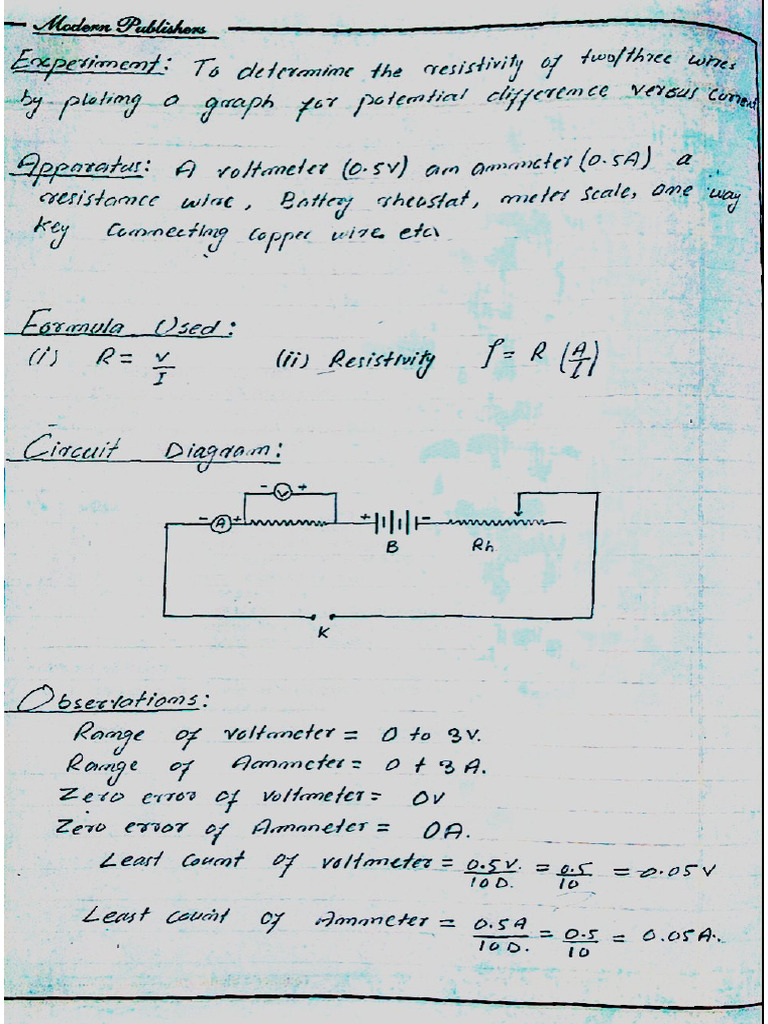 Modern Publishers
Experiment: To determine the resistivity of two/three wires
by ploting a graph for potential difference verous current
Apparatus: A voltmeter (0.5V) am ammeter (0.5A) a
resistance wire, Battery rheostat, meter scale, one way
Key Connecting copper wire etc.
Formula Used:
(i) R = V/I (ii) Resistivity ρ = R (A/l)
Circuit Diagram:
- V +
- A + + - 
B Rh
K
Observations:
Range of voltmeter = 0 to 3V.
Range of Ammeter = 0 t 3A.
Zero error of voltmeter = 0V
Zero error of Ammeter = 0A.
Least count of voltmeter = 0.5V./10D. = 0.5/10 = 0.05V
Least count of Ammeter = 0.5A/10D. = 0.5/10 = 0.05A.